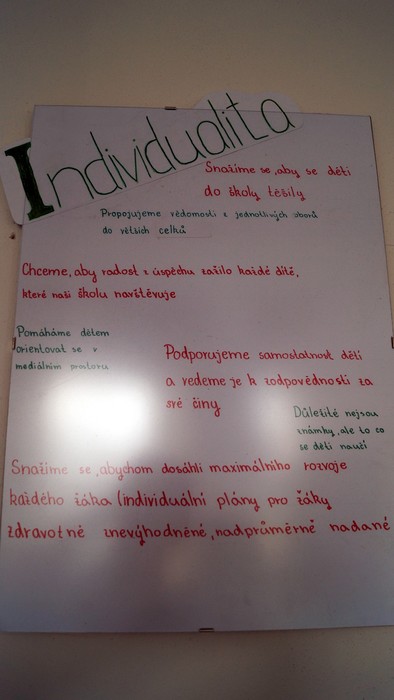 Individualita
Snažíme se, aby se děti
do školy těšily
Propojujeme vědomosti z jednotlivých oborů
do větších celků
Chceme, aby radost z úspěchu zažilo každé dítě,
které naši školu navštěvuje
Pomáháme dětem
orientovat se v
mediálním prostoru
Podporujeme samostatnost dětí
a vedeme je k zodpovědnosti za
své činy
Důležité nejsou
známky, ale to co
se děti naučí
Snažíme se, abychom dosáhli maximálního rozvoje
každého žáka (individuální plány pro žáky
zdravotně znevýhodněné, nadprůměrně nadané